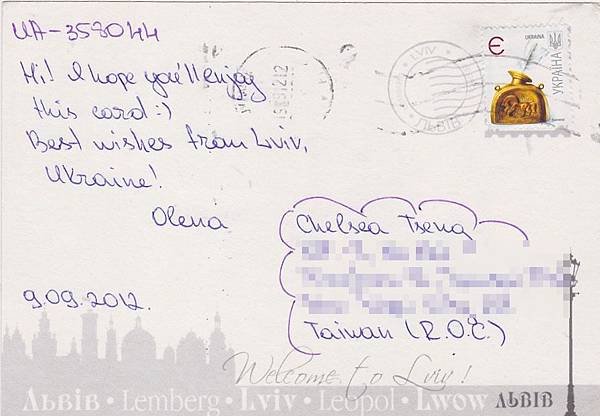 UA-358044
Hi! I hope you'll enjoy
this card :)
Best wishes from Lviv,
Ukraine!
Olena
9.09.2012.
UKRAINE
Є
УКРАЇНА
LVIV
ЛЬВІВ
Chelsea Tseng
Taiwan (R.O.C.)
Welcome to Lviv!
Львів · Lemberg · Lviv · Leopol · Lwow ЛЬВІВ